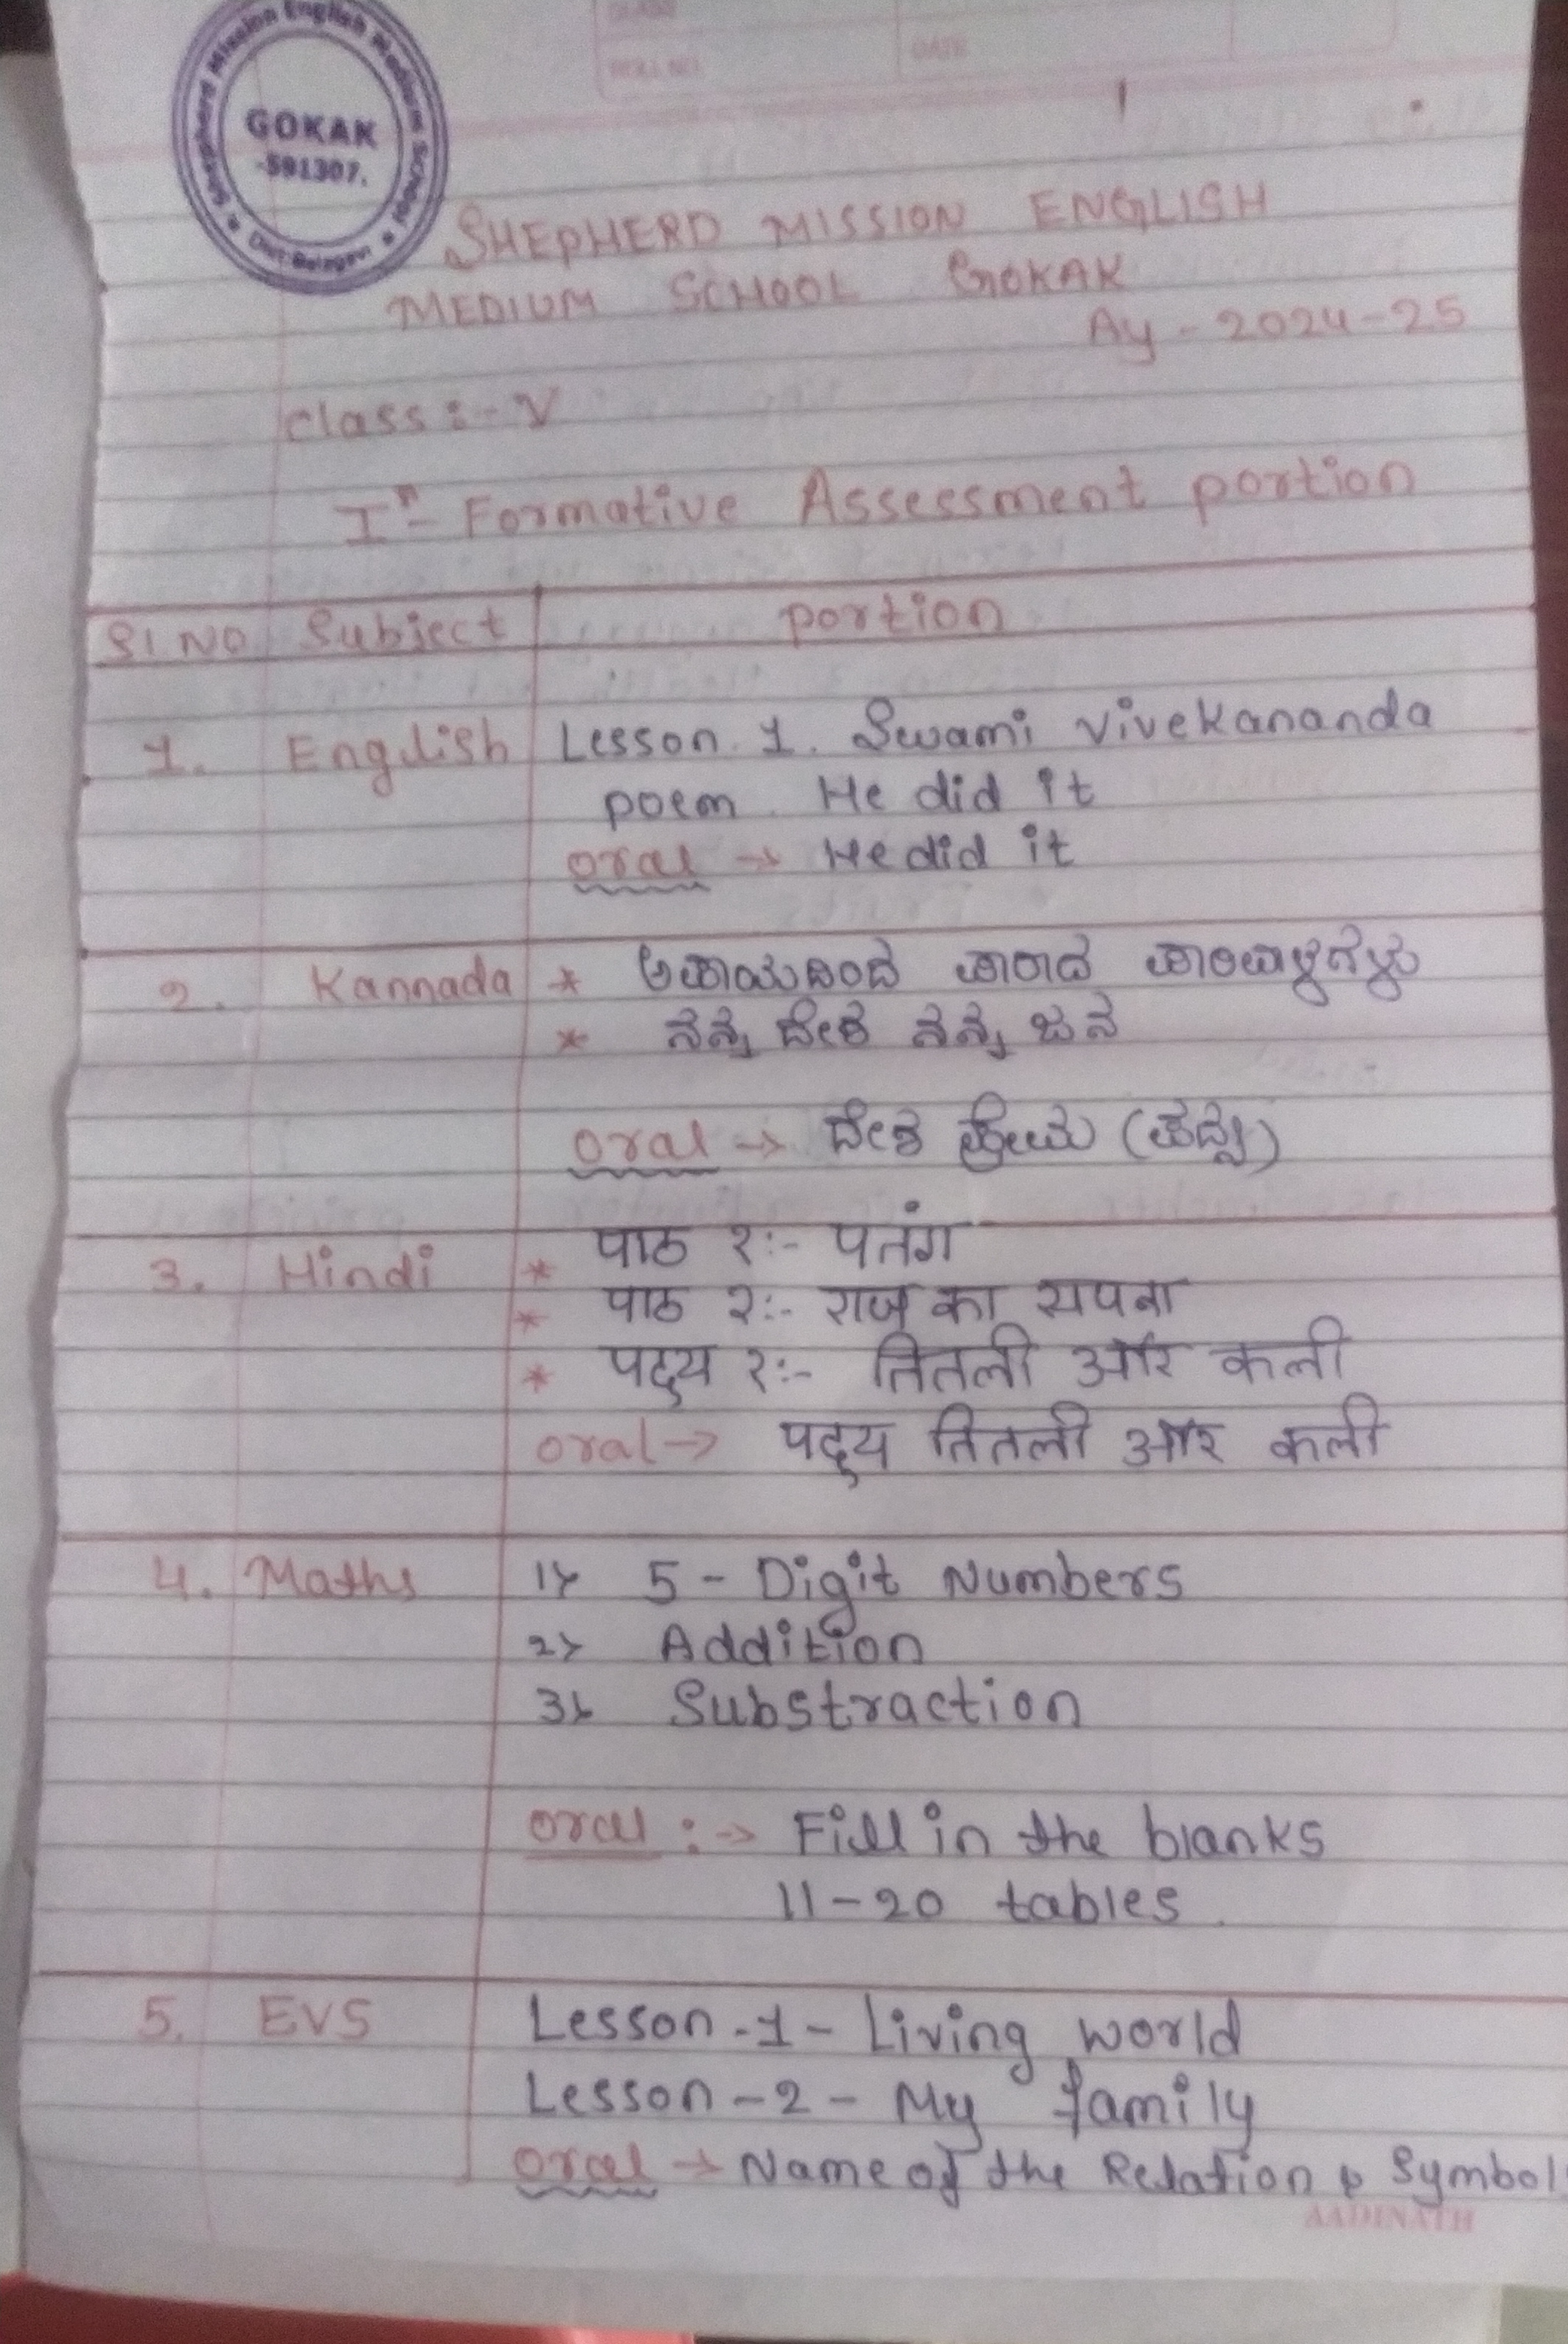 CLASS
ROLL NO.
DATE
Shepherd Mission English Medium School
GOKAK
-591307.
Dist: Belagavi
SHEPHERD MISSION ENGLISH
MEDIUM SCHOOL GOKAK
Ay - 2024-25
Class :- V
Formative Assessment portion
Sl NO Subject portion
1. English Lesson. 1. Swami Vivekananda
poem. He did it
oral → He did it
2. Kannada * ಅಪಾಯದಿಂದ ಪಾರಾದ ಪಾರಿವಾಳಗಳು
* ನನ್ನ ದೇಶ ನನ್ನ ಜನ
oral → ದೇಶ ಪ್ರೇಮ (ಪದ್ಯ)
3. Hindi * पाठ १:- पतंग
* पाठ २:- राजू का सपना
* पद्य १:- तितली और कली
oral → पद्य तितली और कली
4. Maths 1) 5 - Digit Numbers
2) Addition
3) Substraction
oral :→ Fill in the blanks
11-20 tables.
5. EVS Lesson -1 - Living world
Lesson -2 - My family
oral → Name of the Relation & Symbol
AADINATH